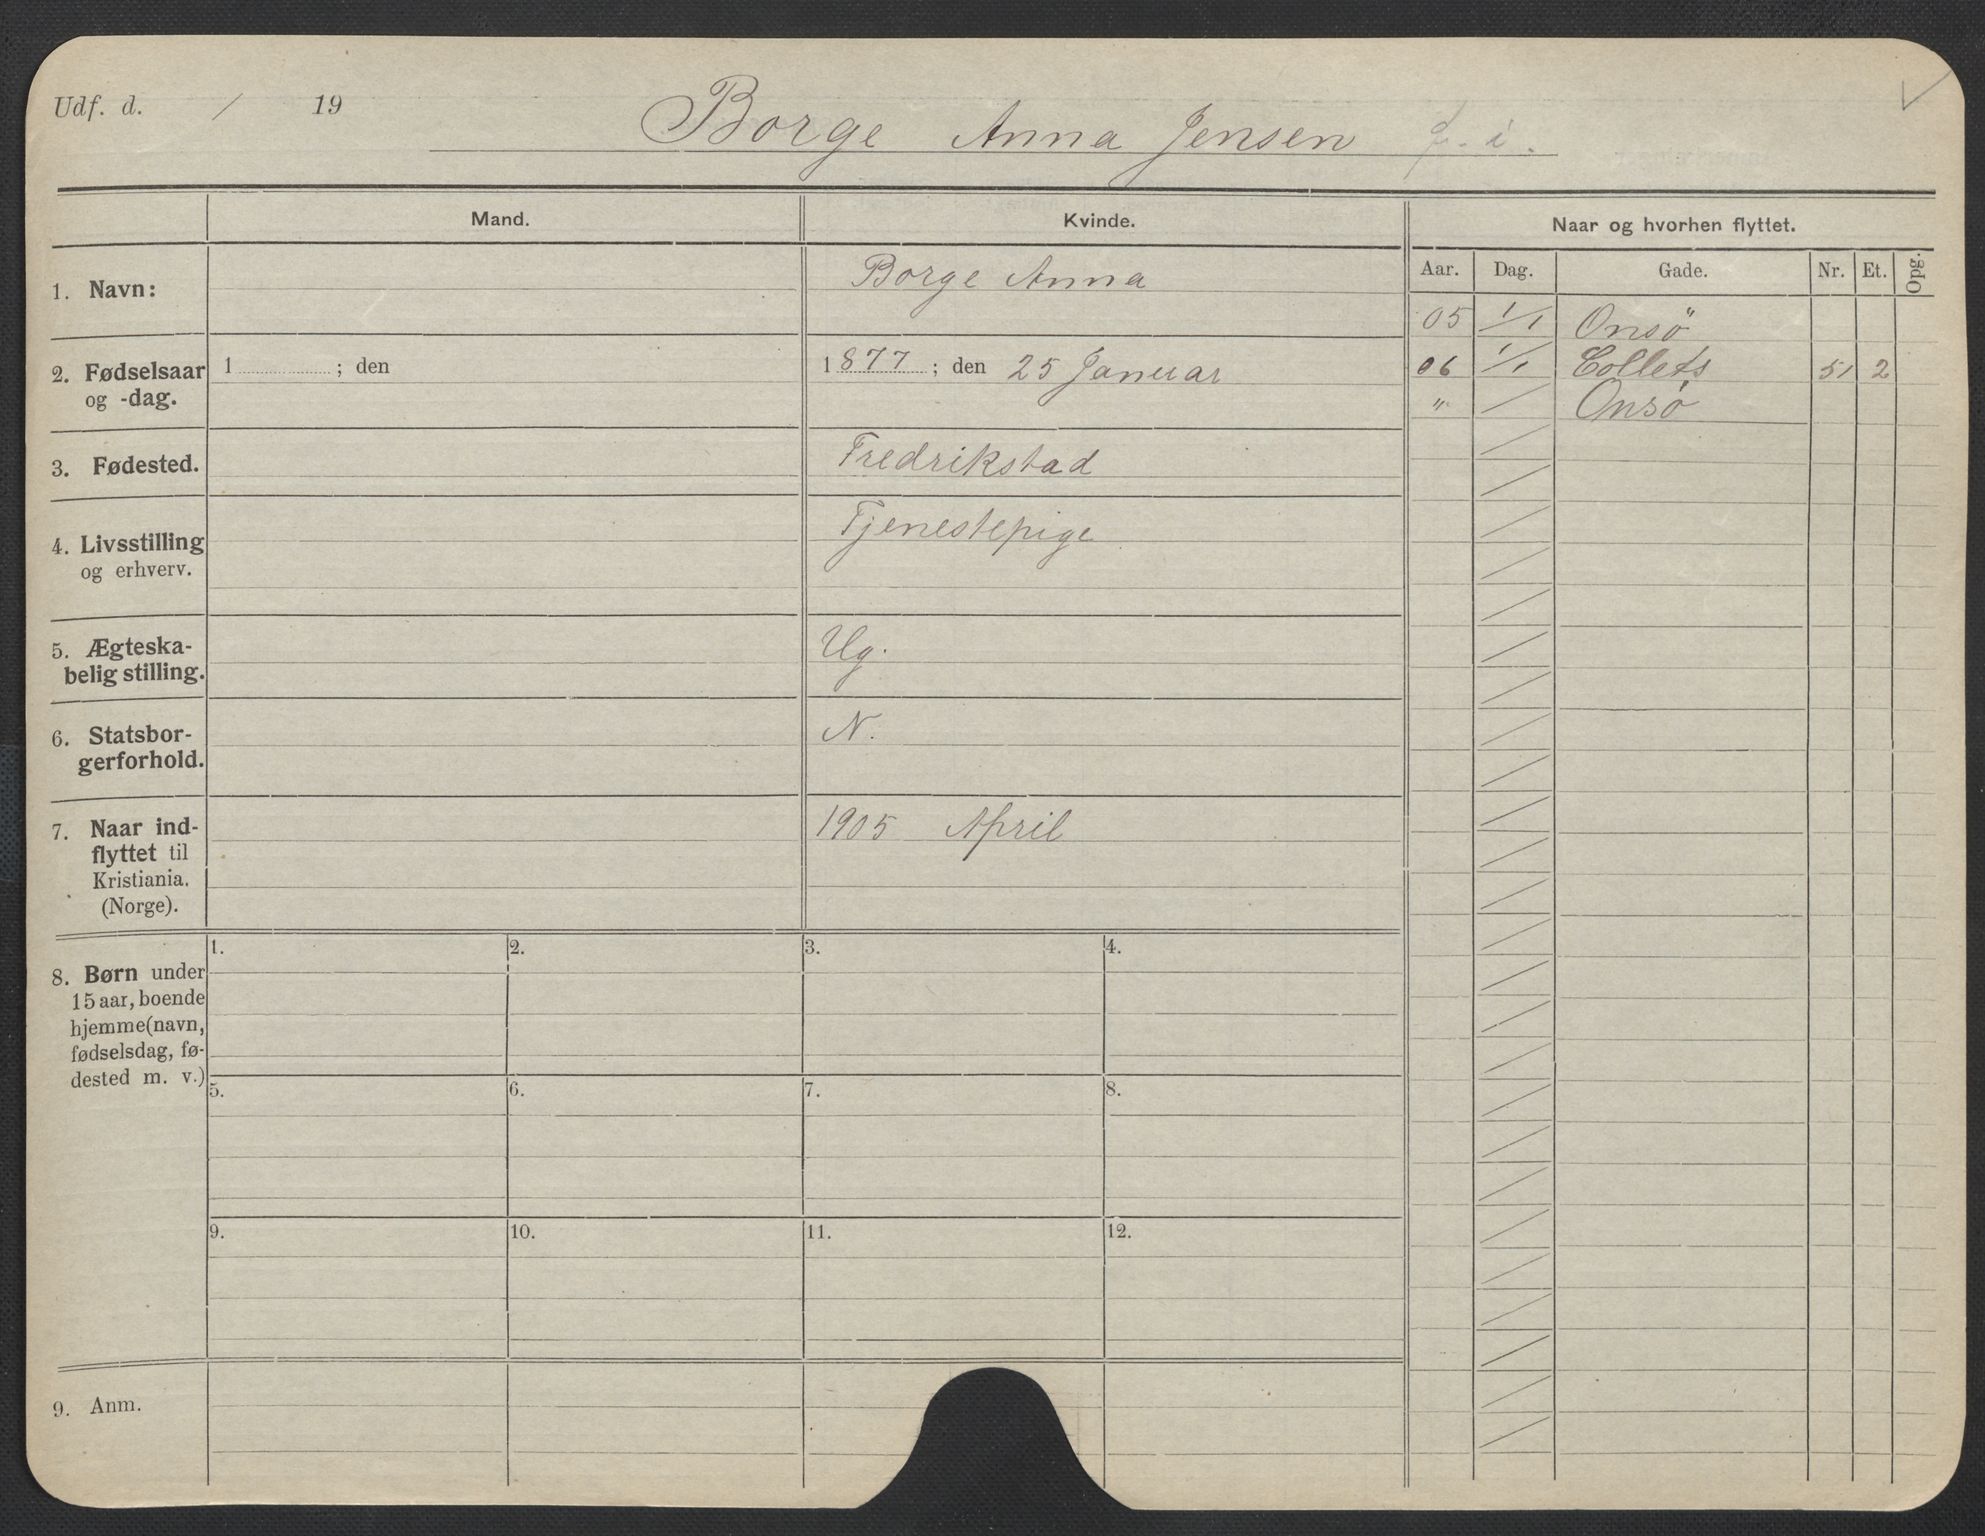 Udf. d. / 19
Borge Anna Jensen f. i.
Mand. Kvinde. Naar og hvorhen flyttet.
Aar. Dag. Gade. Nr. Et. Opg.
1. Navn: Borge Anna
05 1/1 Onsø
2. Fødselsaar 1 ; den 1877 ; den 25 Januar
og -dag.
06 1/1 Collets 51 2
" / Onsø
3. Fødested. Fredrikstad
4. Livsstilling Tjenestepige
og erhverv.
5. Ægteska- Ug.
belig stilling.
6. Statsbor- N.
gerforhold.
7. Naar ind- 1905 April
flyttet til
Kristiania.
(Norge).
8. Børn under
15 aar, boende
hjemme (navn,
fødselsdag, fø-
dested m. v.)
1. 2. 3. 4.
5. 6. 7. 8.
9. 10. 11. 12.
9. Anm.